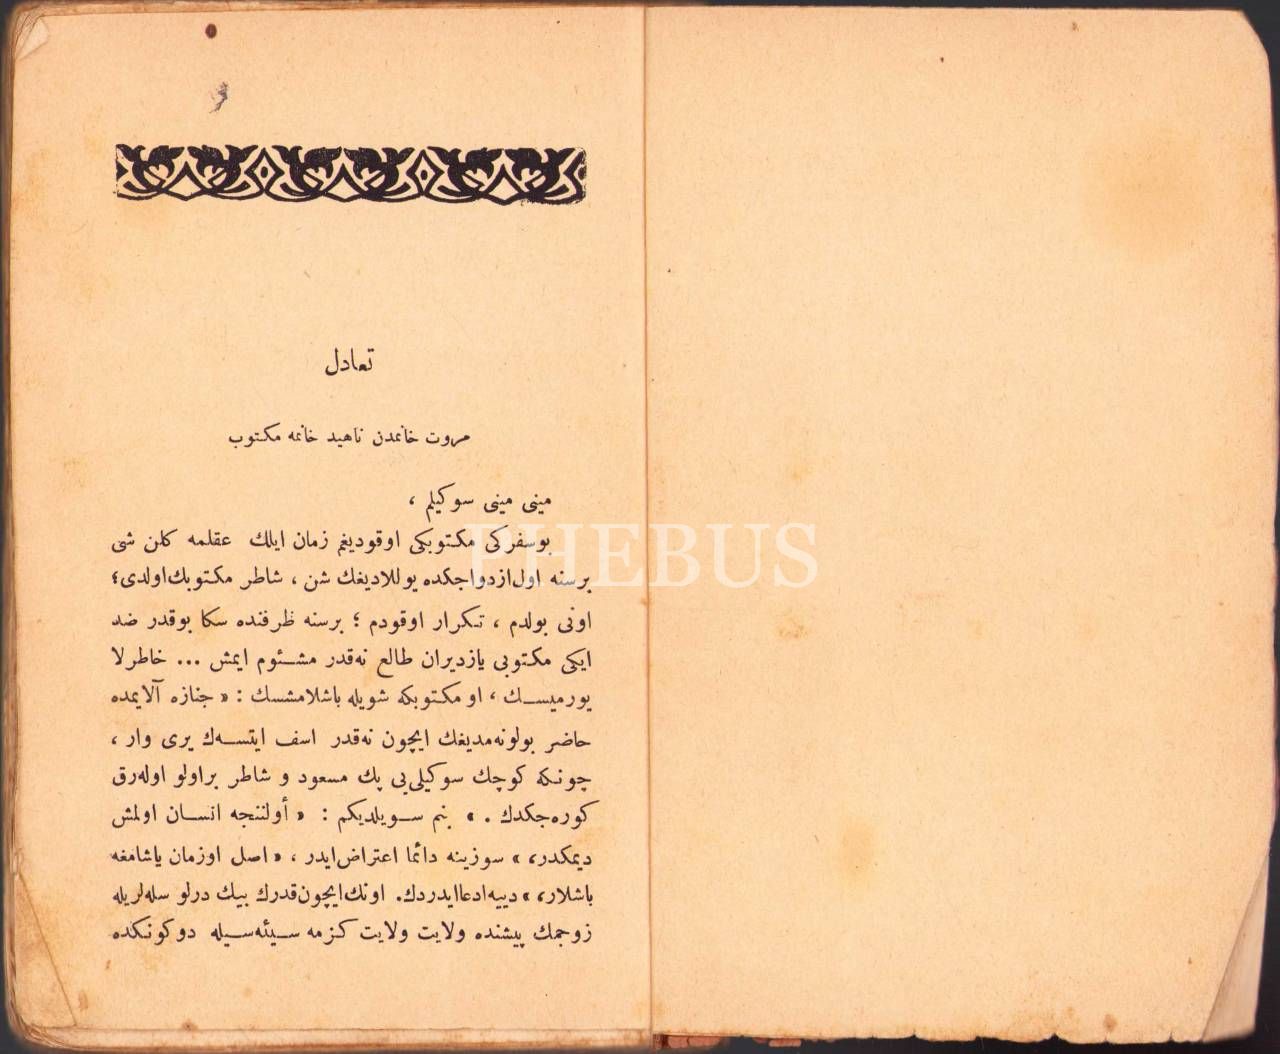 تعادل
مروت خانمدن ناهید خانمه مکتوب
مینی مینی سوکیلم ،
بوسفرکی مکتوبکی اوقودیغم زمان ایلك عقلمه کلن شی
برسنه اول ازدواجکده یوللادیغك شن ، شاطر مکتوبك اولدی؛
اونی بولدم ، تکرار اوقودم ؛ برسنه ظرفنده سکا بوقدر ضد
ایکی مکتوبی یازدیران طالع نه‌قدر مشئوم ایمش ... خاطرلا
یورمیسك ، او مکتوبکه شویله باشلامشسك : « جنازه آلایمده
حاضر بولونه‌مدیغك ایچون نه‌قدر اسف ایتسه‌ك یری وار ،
چونکه کوچك سوکیلی‌یی پك مسعود و شاطر براولو اوله‌رق
کوره‌جکدك . » بنم سویلدیکم : « أولننجه انسان اولمش
دیمکدر، » سوزینه دائما اعتراض ایدر ، « اصل اوزمان یاشامغه
باشلار، » دییه ادعا ایدردك. اونك ایچون قدرك بیك درلو سله‌لریله
زوجمك پیشنده ولایت ولایت کزمه سیئه‌سیله دوکونکده
PHEBUS